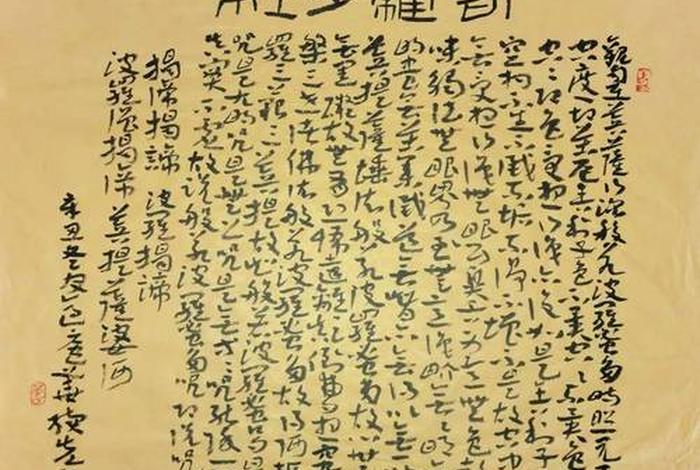 觀自在菩薩行深般若波羅蜜多時照
度一切苦厄舍利子色不異空空不異色
空即是色受想行識亦復如是舍利子
空相不生不滅不垢不淨不增不減是故空中
無受想行識無眼耳鼻舌身意無色
味觸法無眼界乃至無意識界無無明
無苦集滅道無智亦無得以無
菩提薩埵依般若波羅蜜多故心無
無罣礙故無有恐怖遠離顛倒夢想究
槃三世諸佛依般若波羅蜜多故得阿耨
羅三藐三菩提故知般若波羅蜜多是
咒是大明咒是無上咒是無等等咒能除一
真實不虛故說般若波羅蜜多咒即說咒
揭諦揭諦 波羅揭諦
波羅僧揭諦 菩提薩婆訶
辛丑冬